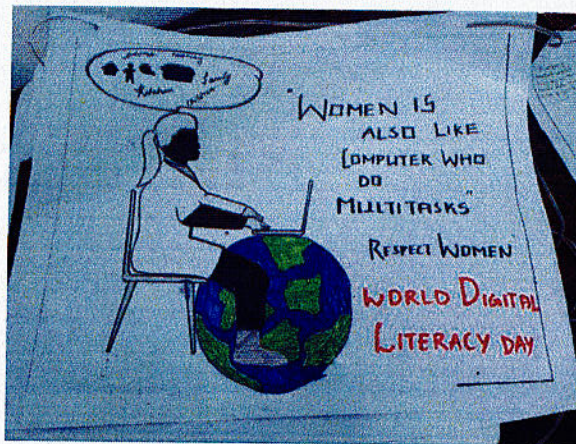 Kitchen
Family
"WOMEN IS
ALSO LIKE
COMPUTER WHO
DO
MULTITASKS"
RESPECT WOMEN
WORLD DIGITAL
LITERACY DAY